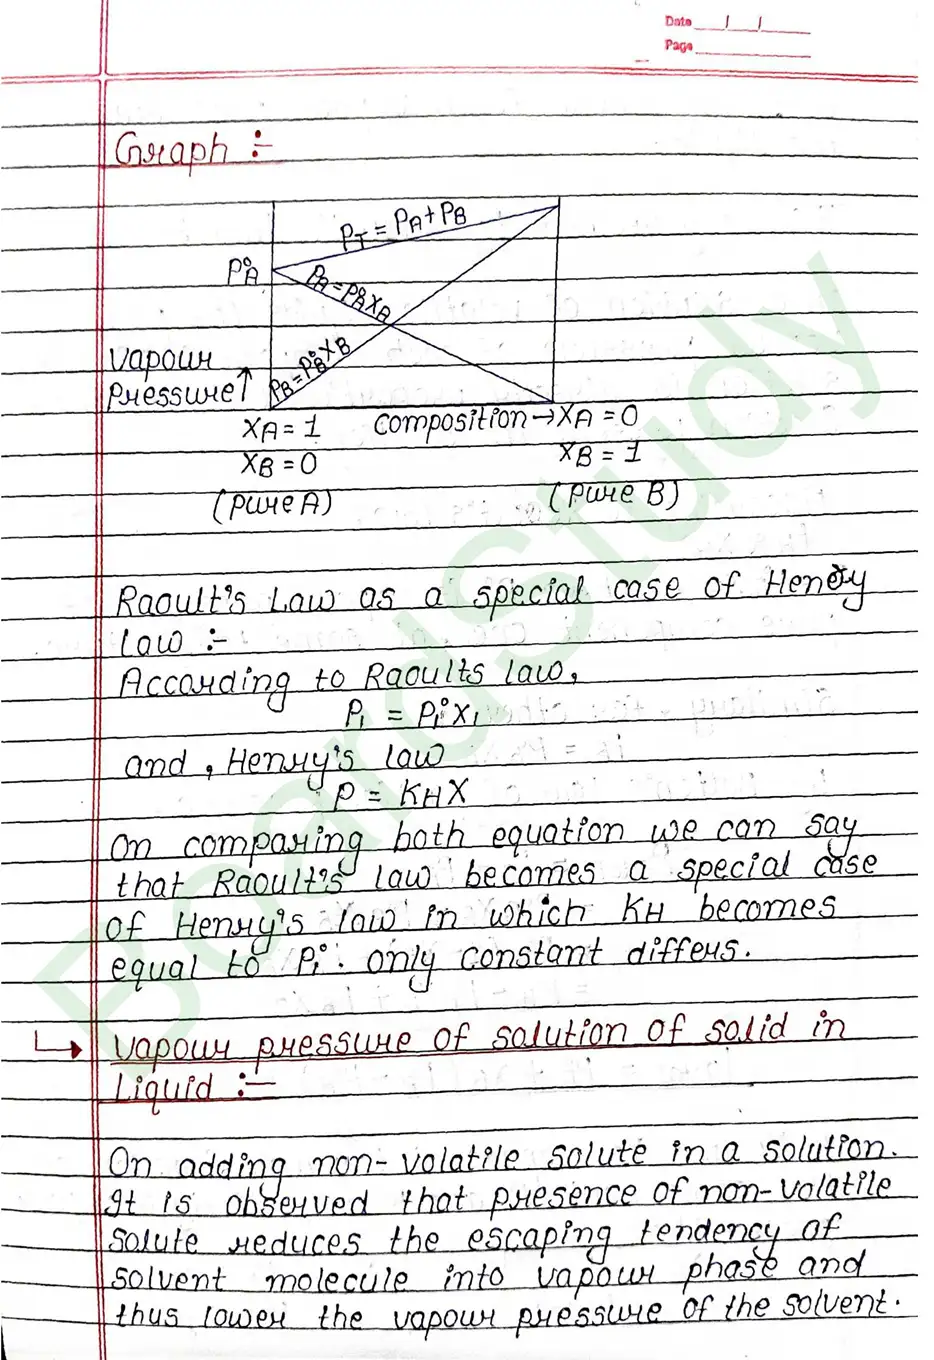 Date __/__/__
Page
Graph :-
P_T = P_A + P_B
P°_A
P_A = P°_A X_A
P_B = P°_B X_B
Vapour
Pressure↑
X_A = 1 Composition → X_A = 0
X_B = 0 X_B = 1
(Pure A) (Pure B)
Raoult's Law as a special case of Henry
Law :-
According to Raoults law,
P₁ = P₁° X₁
and, Henry's law
P = K_H X
On comparing both equation we can say
that Raoult's law becomes a special case
of Henry's law in which K_H becomes
equal to P₁°. only constant differs.
Vapour pressure of solution of solid in
Liquid :-
On adding non-volatile solute in a solution.
It is observed that presence of non-volatile
solute reduces the escaping tendency of
solvent molecule into vapour phase and
thus lower the vapour pressure of the solvent.
BoardStudy